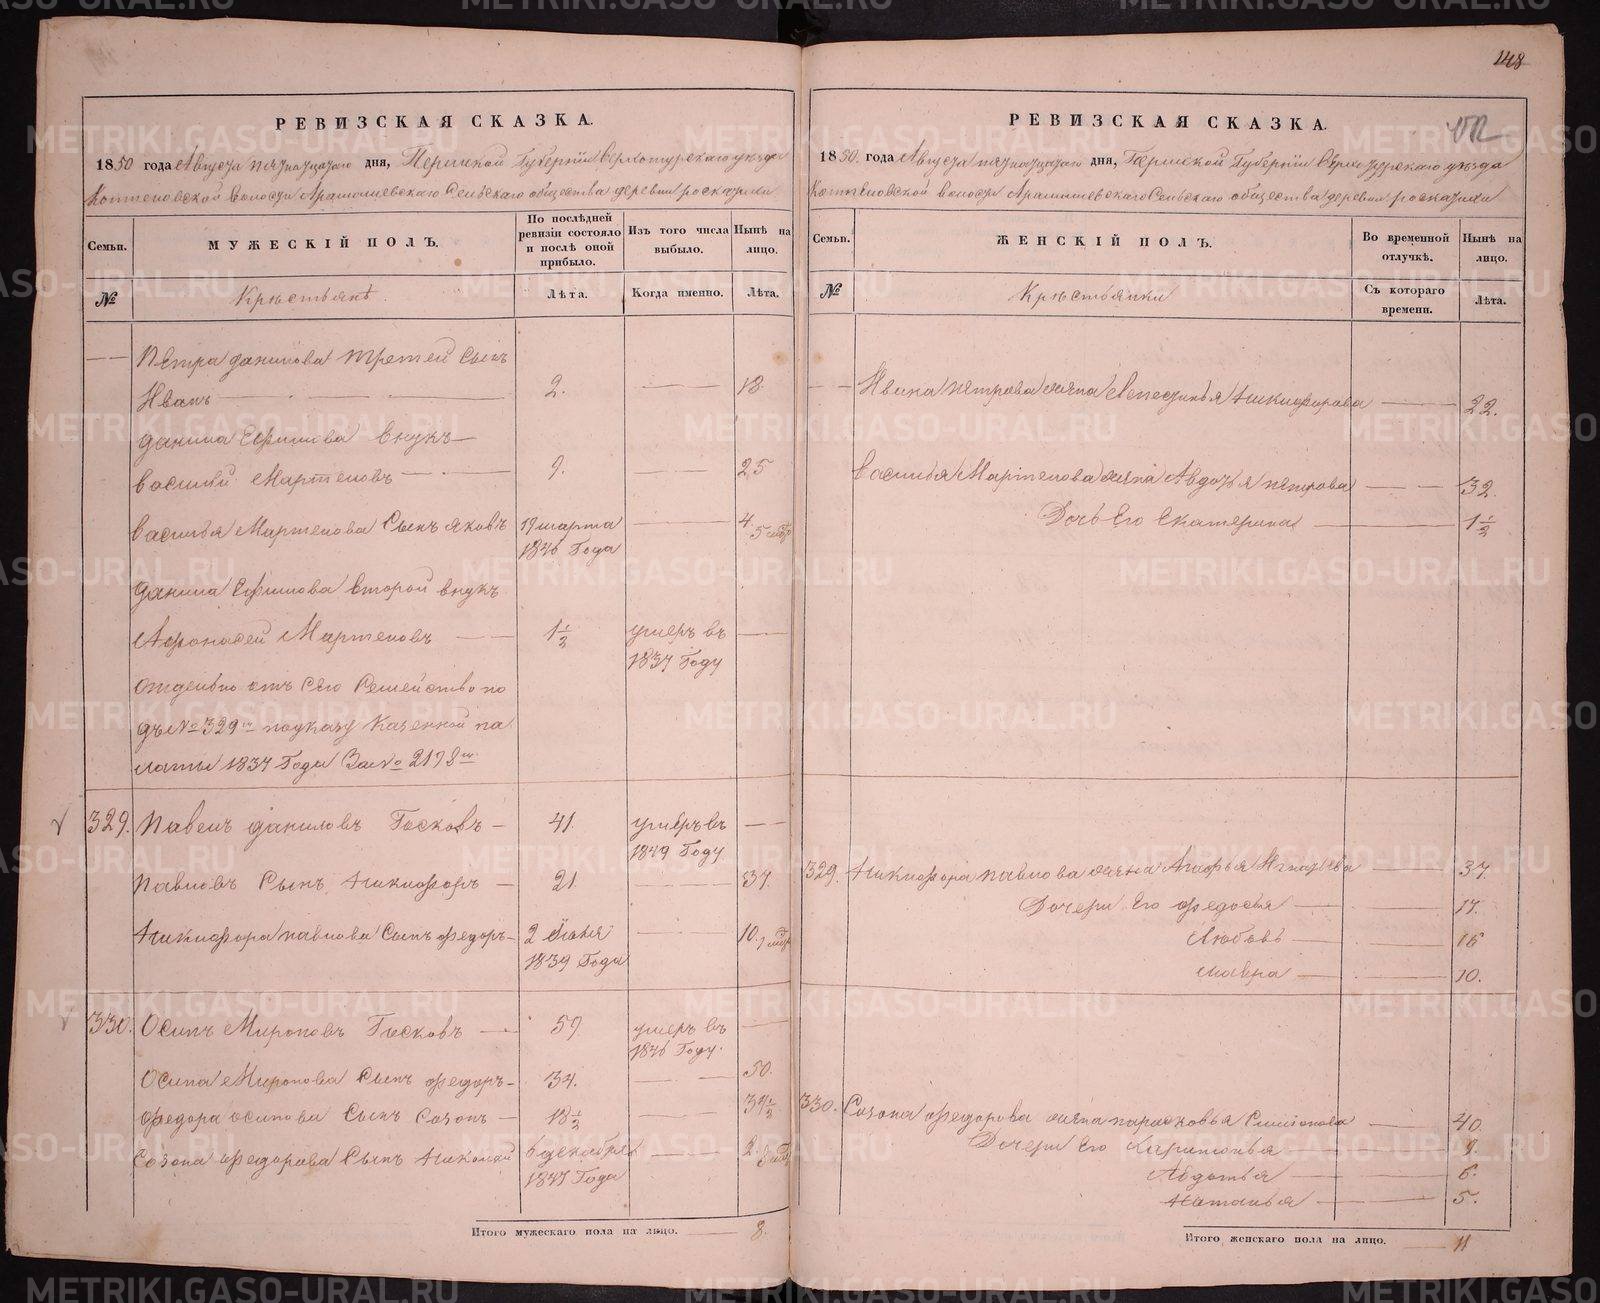 148
РЕВИЗСКАЯ СКАЗКА.
1850 года Августа пятнадцатаго дня, Пермской Губернии Верхотурскаго уѣзда
волости Арамашевскаго Сельскаго общества деревни
Семьи.
МУЖЕСКІЙ ПОЛЪ.
По послѣдней ревизіи состояло и послѣ оной прибыло.
Изъ того числа выбыло.
Нынѣ на лицо.
№
Крестьянѣ
Лѣта.
Когда именно.
Лѣта.
Петра данилова третей сынъ
Иванъ 2. 18
данила Ефимова внукъ
василий Мартемовъ 9. 25
василья Мартемова Сынъ яковъ 19 марта 4.
1846 Года
данила Ефимова второй внукъ
Афонасей Мартемовъ 1 1/2 умеръ въ
1837 Году
отделено отъ сего Семейство по
дъ № 329 м по указу Казенной па
латы 1837 Года За № 2192 м
329. Павелъ даниловъ Госковъ 41. умеръ въ
1849 Году
Павловъ Сынъ Никифоръ 21. 37.
Никифора павлова Сынъ федоръ 2 10.
1839 Года
330. Осипъ Мироновъ Госковъ 59 умеръ въ
1846 Году.
Осипа Миронова Сынъ федоръ 34. 50.
федора осипова Сынъ Созонъ 18 1/2 34 1/2
Созона федорова Сынъ Николай 6 декабря 2.
1847 Года
Итого мужескаго пола на лицо. 8.
РЕВИЗСКАЯ СКАЗКА.
1850. года Августа пятнадцатаго дня, Пермской Губернии Верхотурскаго уѣзда
волости Арамашевскаго Сельскаго общества деревни
Семьи.
ЖЕНСКІЙ ПОЛЪ.
Во временной отлучкѣ.
Нынѣ на лицо.
№
Крестьянки
Съ котораго времени.
Лѣта.
Ивана петрова жена Апестинья Никифорова 22.
василья Мартемова жена Авдотья петрова 32.
Дочь Его Екатерина 1 1/2
329. Никифора павлова жена Агафья Игнатьева 37.
Дочери Его федосья 17.
Любовь 16
мавра 10.
330. Созона федорова жена парасковья Симионова 40.
Дочери Его 9.
Авдотья 6.
Наталья 5.
Итого женскаго пола на лицо. 11
METRIKI.GASO-URAL.RU